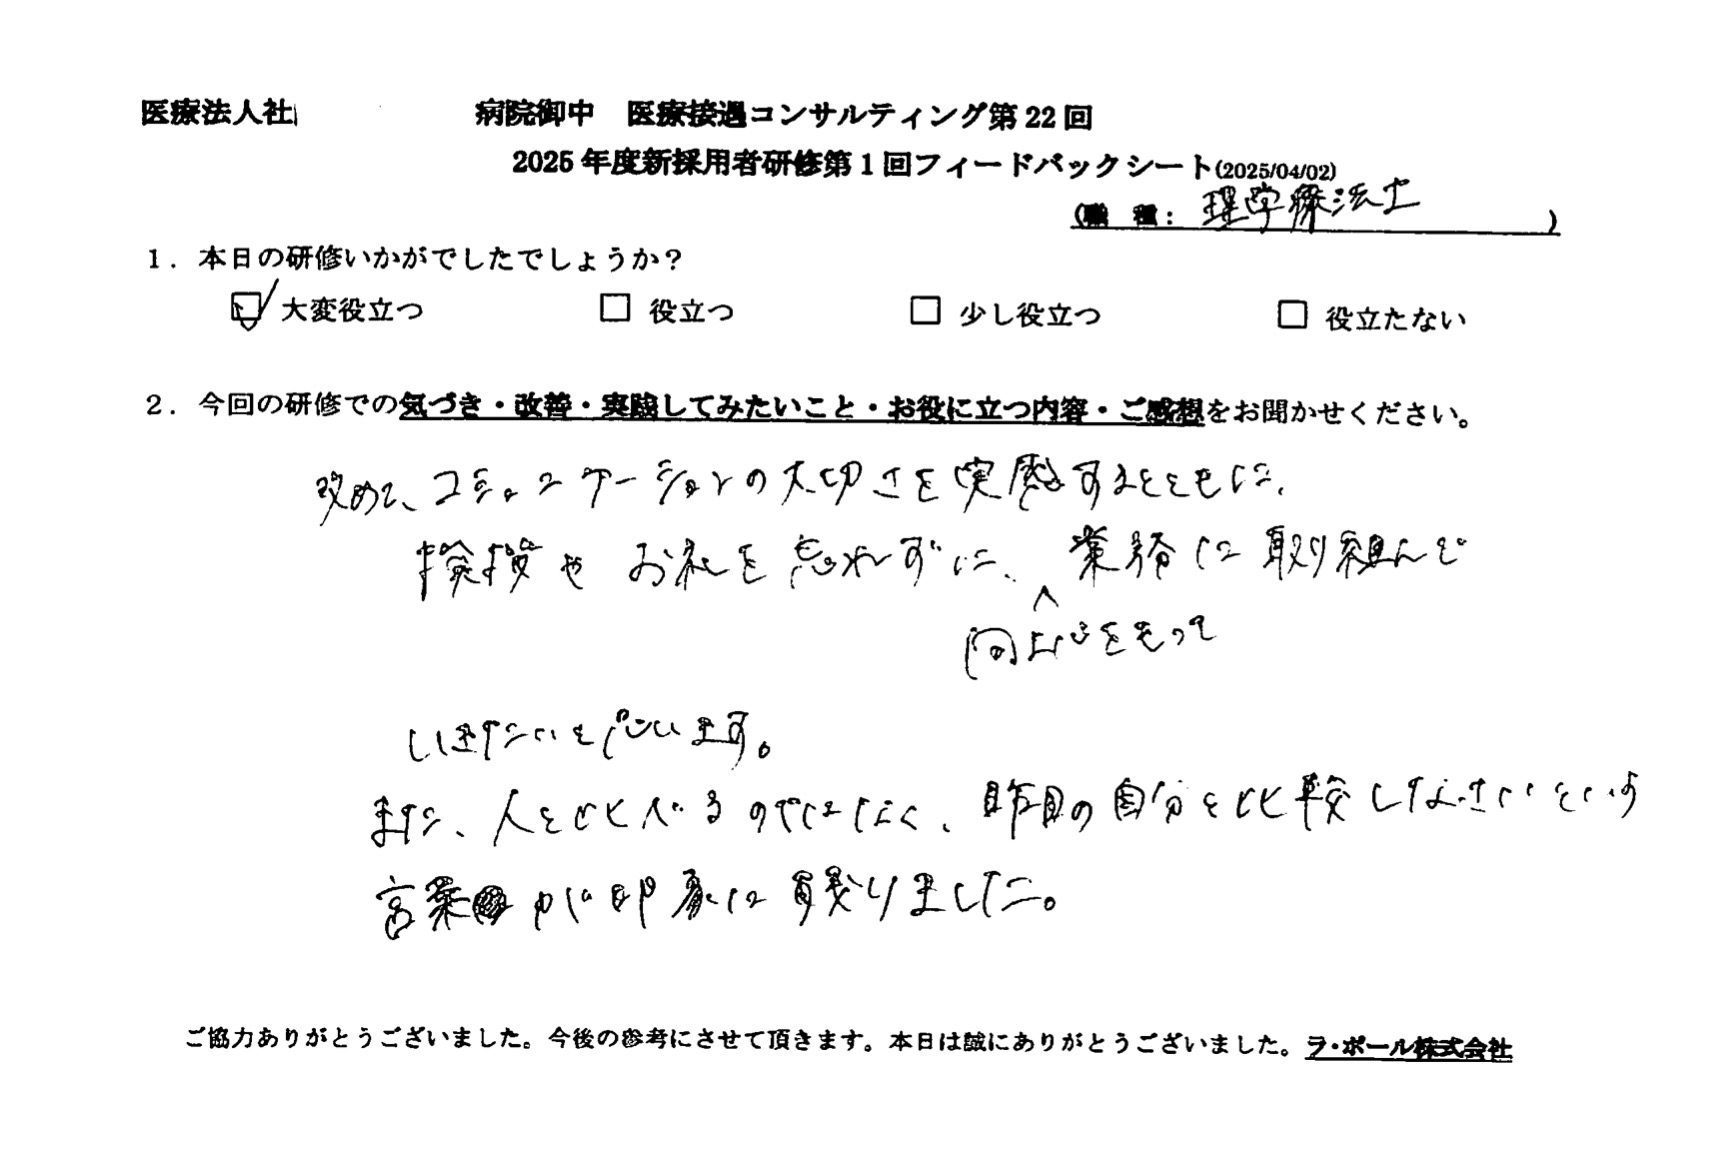 医療法人社 病院御中 医療接遇コンサルティング第22回
2025年度新採用者研修第1回フィードバックシート(2025/04/02)
(職 種: 理学療法士 )
1. 本日の研修いかがでしたでしょうか?
大変役立つ 役立つ 少し役立つ 役立たない
2. 今回の研修での気づき・改善・実践してみたいこと・お役に立つ内容・ご感想をお聞かせください。
改めて、コミュニケーションの大切さを実感するとともに、
挨拶や お礼を忘れずに、 業務に取り組んで
向上心をもって
いきたいと思います。
また、人とくらべるのではなく、昨日の自分と比較しなさいという
言葉が印象に残りました。
ご協力ありがとうございました。今後の参考にさせて頂きます。本日は誠にありがとうございました。ラ・ポール株式会社